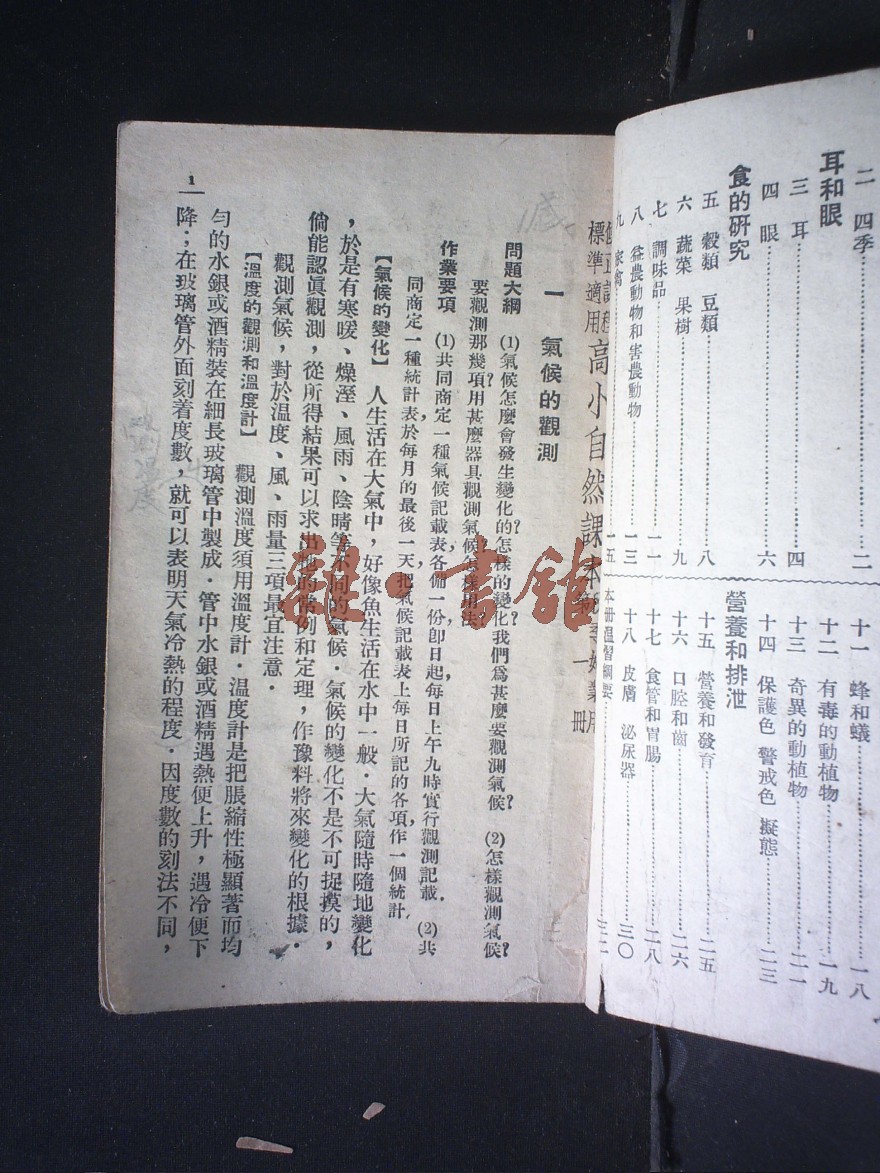 二　四季……二
耳和眼
三　耳……四
四　眼……六
食的研究
五　穀類　豆類……八
六　蔬菜　果樹……九
七　調味品……一一
八　益農動物和害農動物……一三
九　家禽……一五
十一　蜂和蟻……一八
十二　有毒的動植物……一九
十三　奇異的動植物……二一
十四　保護色　警戒色　擬態……二三
營養和排泄
十五　營養和發育……二五
十六　口腔和齒……二六
十七　食管和胃腸……二八
十八　皮膚　泌尿器……三〇
本冊溫習綱要……三二
標準適用
高小自然課本
一　氣候的觀測
問題大綱　(1)氣候怎麼會發生變化的？怎樣的變化？我們爲甚麼要觀測氣候？　(2)怎樣觀測氣候？
要觀測那幾項？用甚麼器具觀測氣候？怎樣用法？
作業要項　(1)共同商定一種氣候記載表，各備一份，卽日起，每日上午九時，實行觀測記載．　(2)共
同商定一種統計表，於每月的最後一天，把氣候記載表上每日所記的各項，作一個統計．
【氣候的變化】　人生活在大氣中，好像魚生活在水中一般．大氣隨時隨地變化
，於是有寒暖、燥溼、風雨、陰晴等不同的氣候．氣候的變化不是不可捉摸的，
倘能認眞觀測，從所得結果可以求出牠的常例和定理，作豫料將來變化的根據．
觀測氣候，對於温度、風、雨量三項最宜注意．
【溫度的觀測和溫度計】　觀測溫度須用溫度計．温度計是把脹縮性極顯著而均
勻的水銀或酒精裝在細長玻璃管中製成．管中水銀或酒精遇熱便上升，遇冷便下
降；在玻璃管外面刻着度數，就可以表明天氣冷熱的程度．因度數的刻法不同，
1
雜·書館